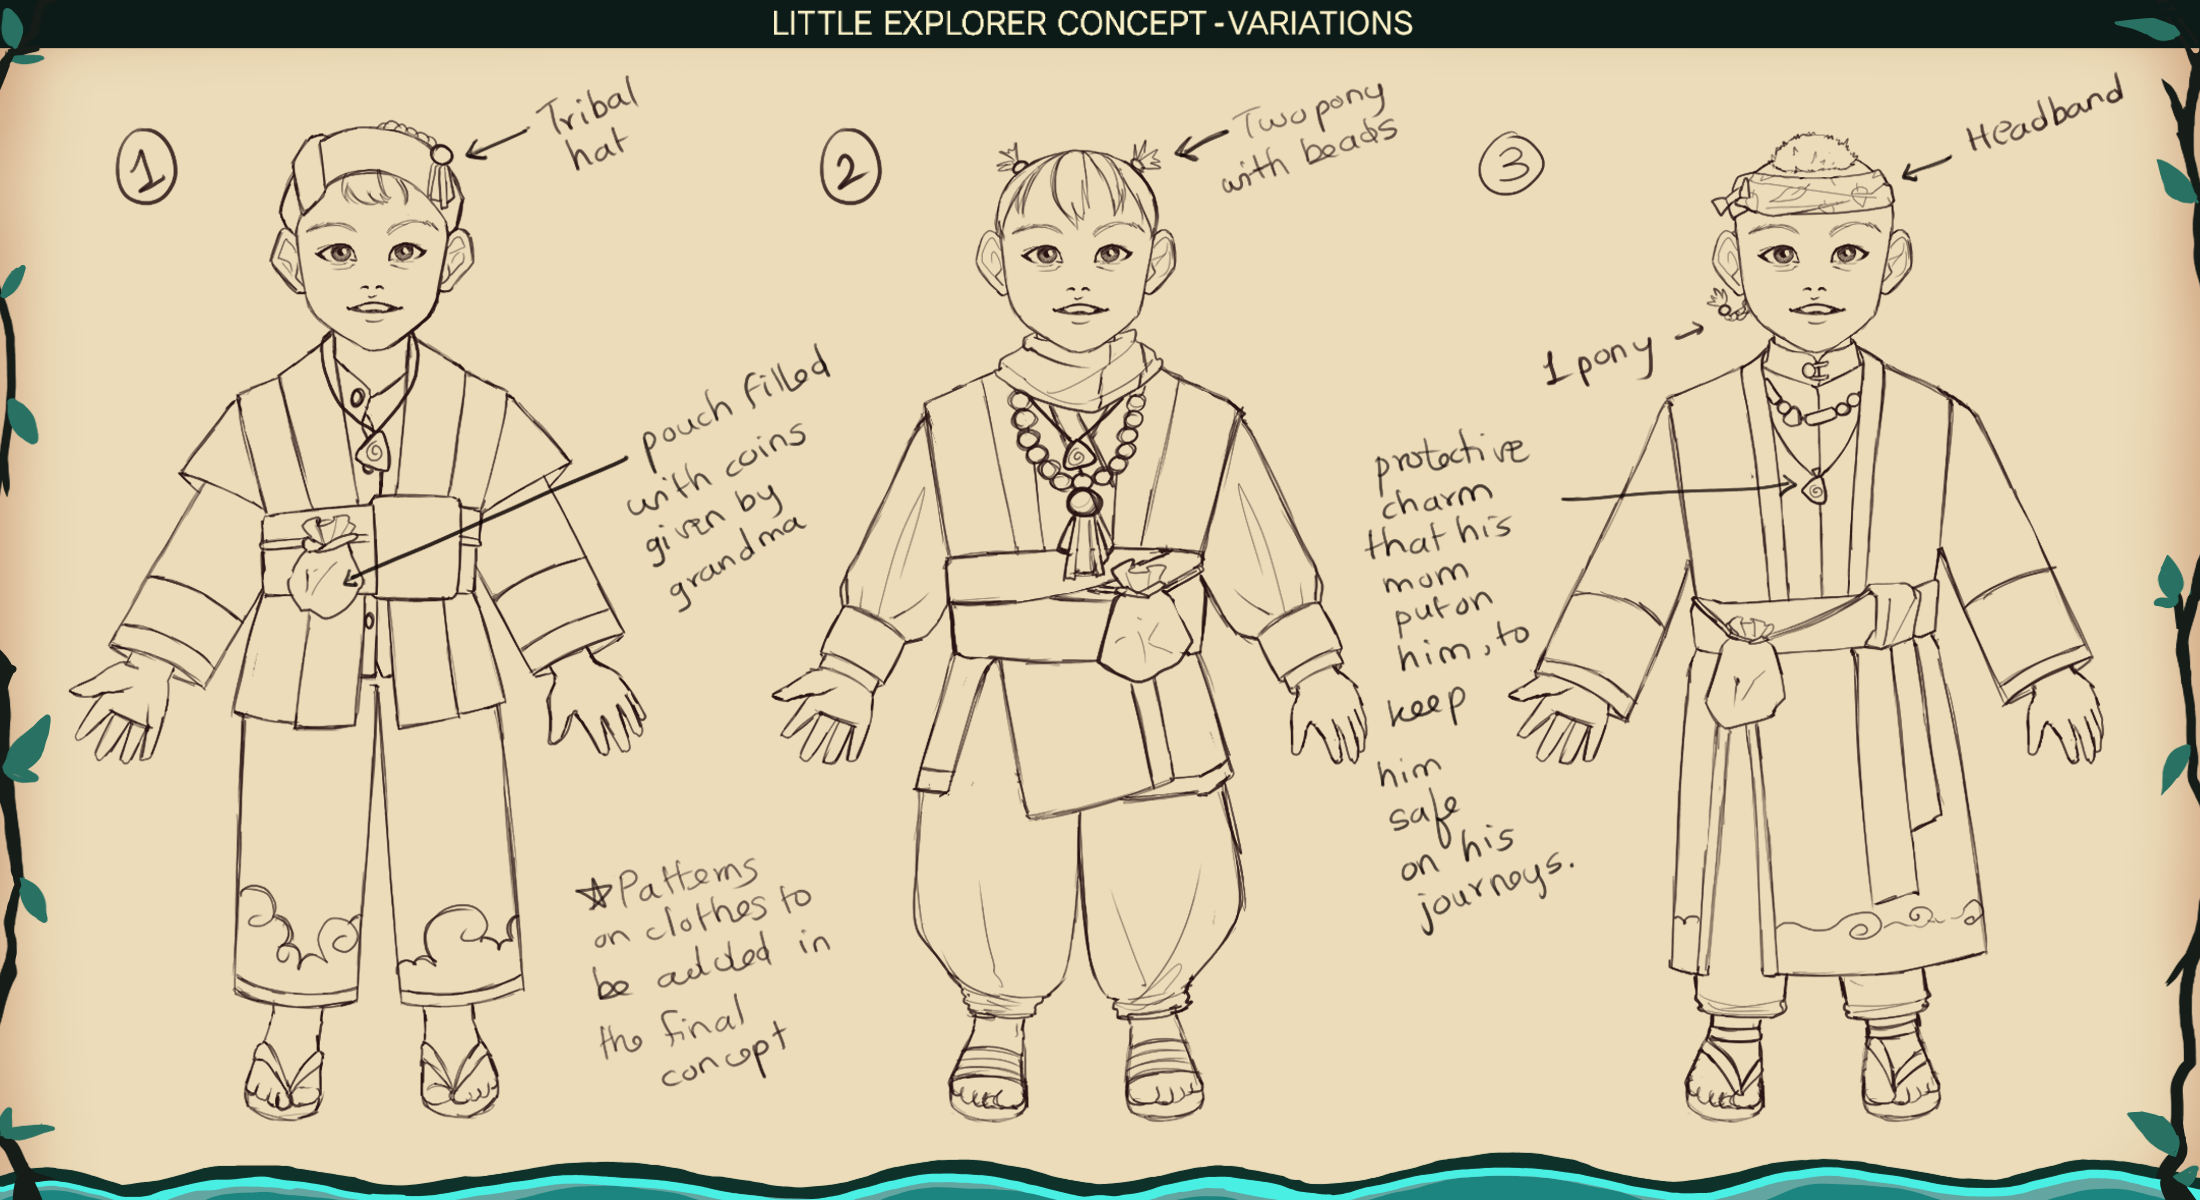 LITTLE EXPLORER CONCEPT - VARIATIONS
1
Tribal
hat
pouch filled
with coins
given by
grandma
★ Patterns
on clothes to
be added in
the final
concept
2
Two pony
with beads
protective
charm
that his
mom
put on
him, to
keep
him
safe
on his
journeys.
3
Headband
1 pony